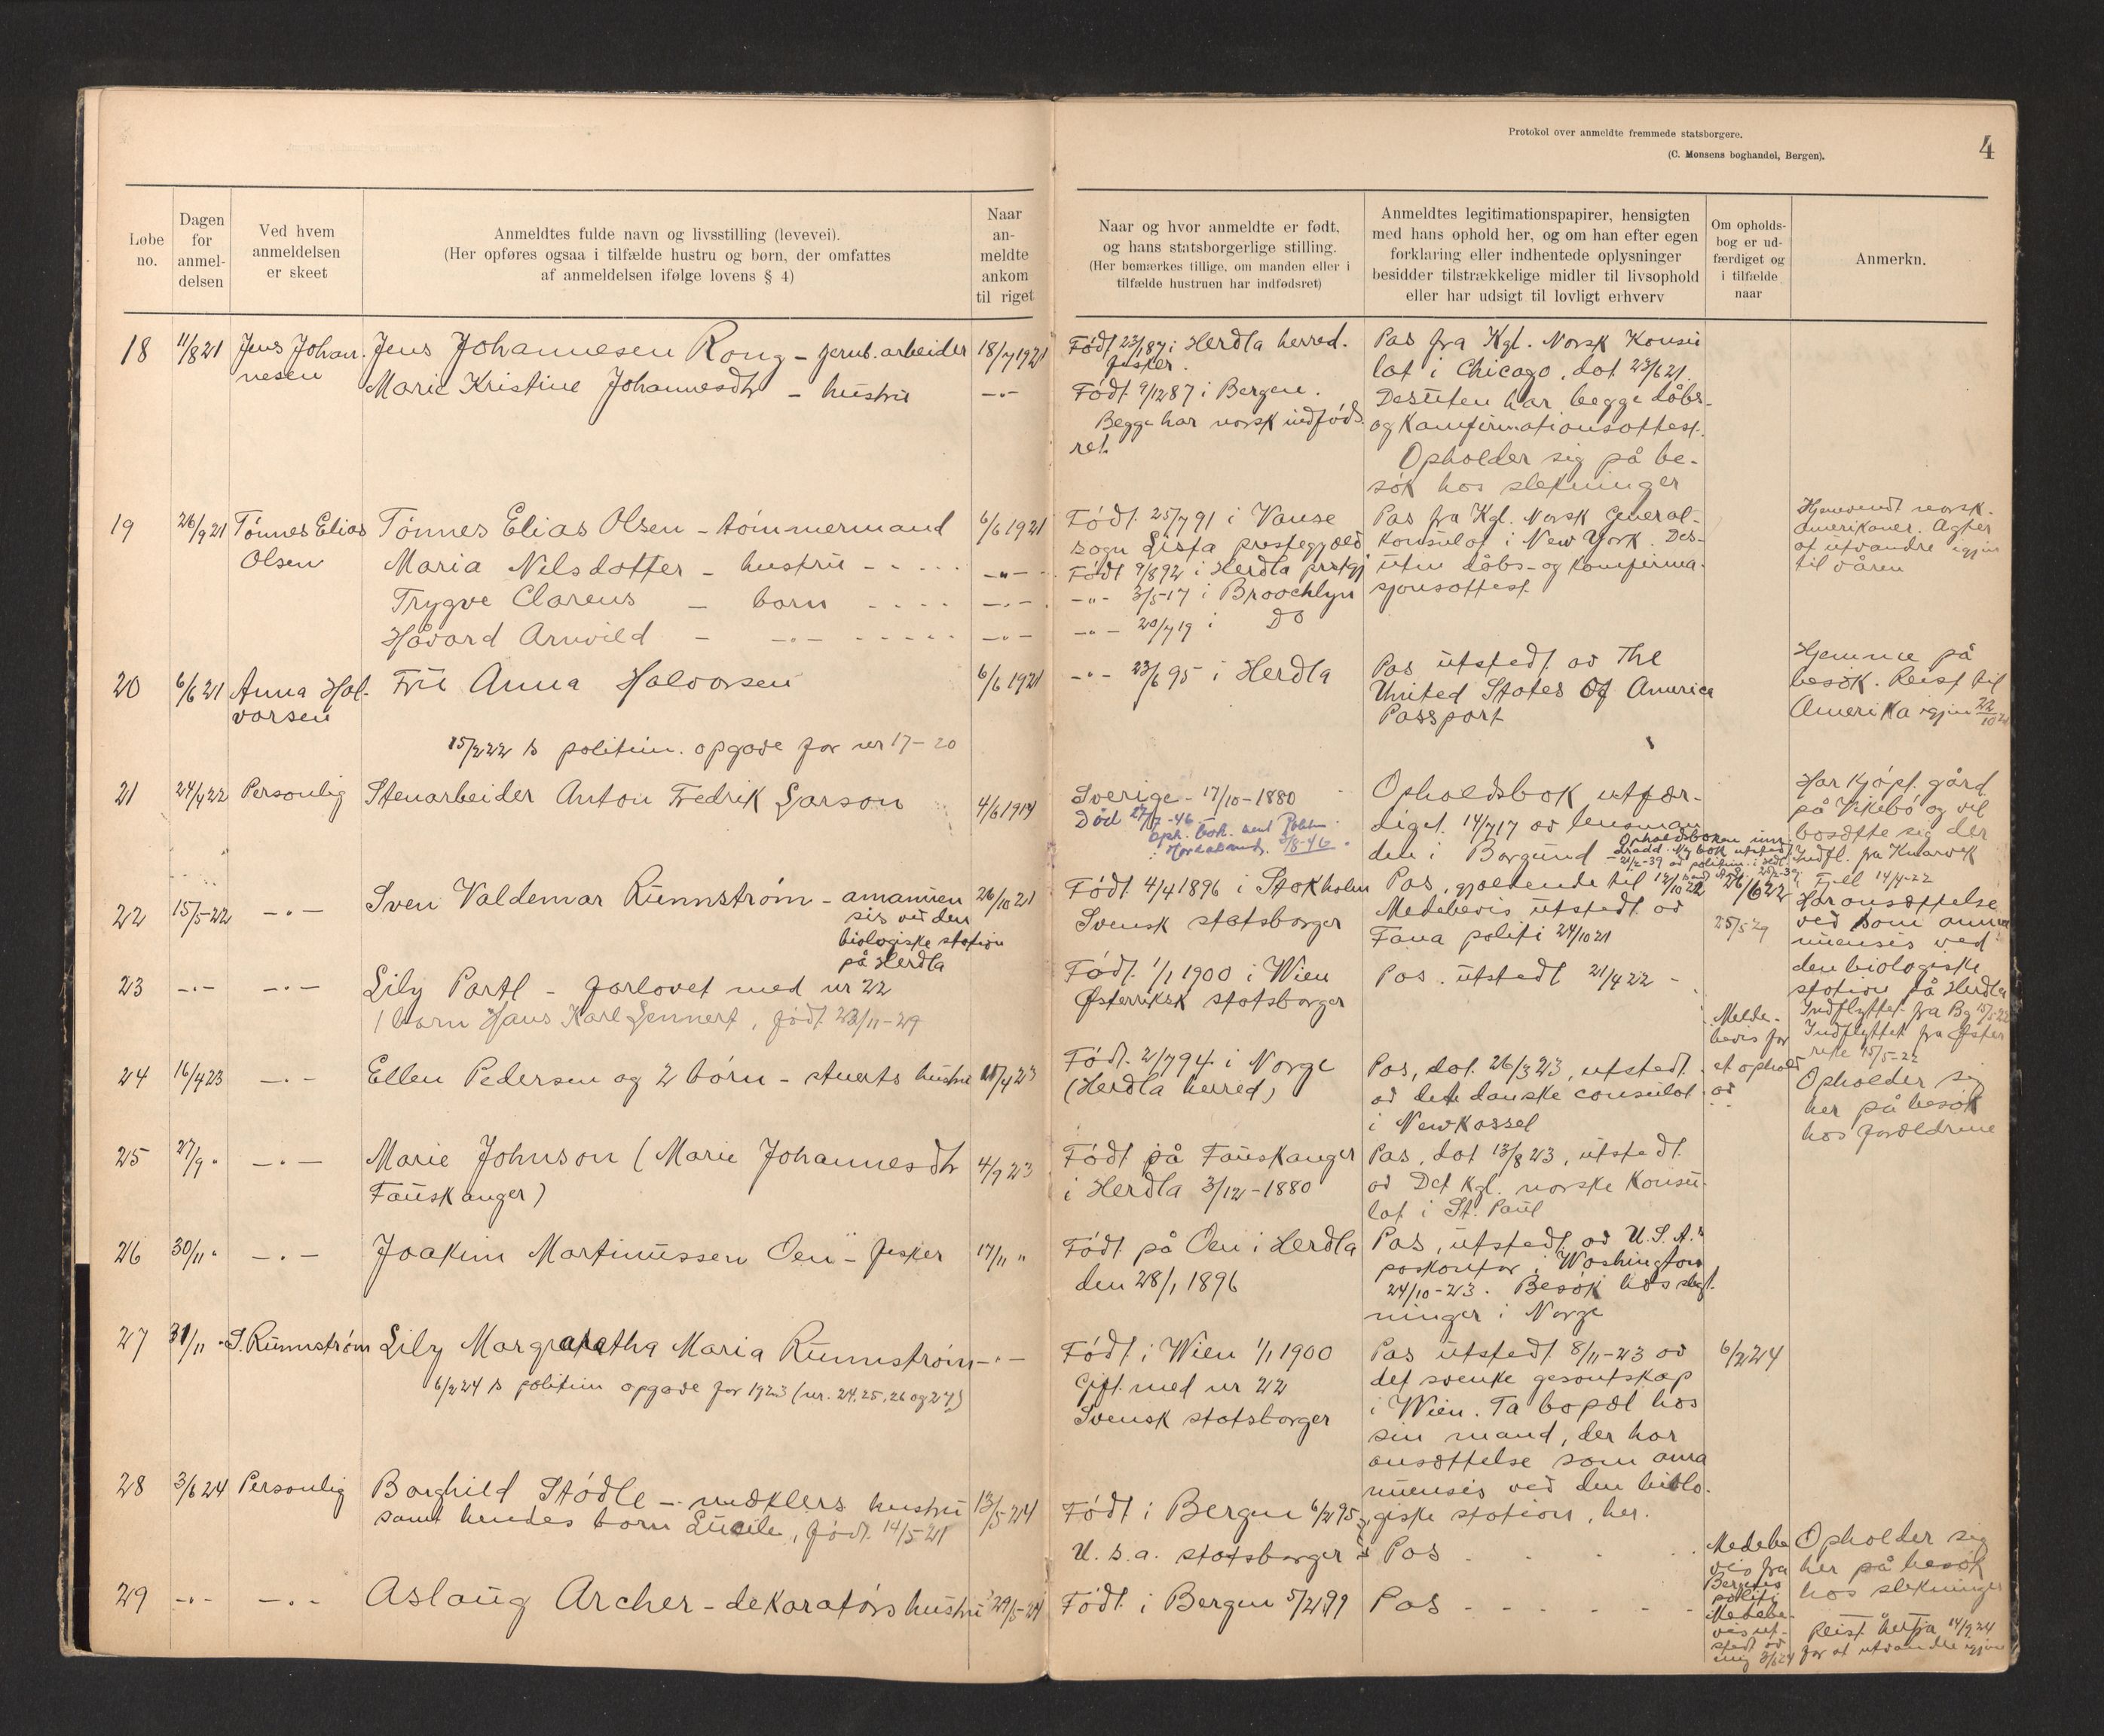 Protokol over anmeldte fremmede statsborgere.
(C. Monsens boghandel, Bergen).
4
Løbe no.
Dagen for anmel-delsen
Ved hvem anmeldelsen er skeet
Anmeldtes fulde navn og livsstilling (levevei).
(Her opføres ogsaa i tilfælde hustru og børn, der omfattes
af anmeldelsen ifølge lovens § 4)
Naar an-meldte ankom til riget
Naar og hvor anmeldte er født,
og hans statsborgerlige stilling.
(Her bemærkes tillige, om manden eller i
tilfælde hustruen har indfødsret)
Anmeldtes legitimationspapirer, hensigten
med hans ophold her, og om han efter egen
forklaring eller indhentede oplysninger
besidder tilstrækkelige midler til livsophold
eller har udsigt til lovligt erhverv
Om opholds-bog er ud-færdiget og i tilfælde naar
Anmerkn.
18 11/8 21 Jens Johan-nesen
Jens Johannesen Rong - jernb. arbeider 18/7 1921
Marie Kristine Johannesdtr - hustru -"-
Født 23/1 87 i Herdla herred.
fisker.
Født 9/12 87 i Bergen.
Begge har norsk indføds
ret
Pas fra Kgl. Norsk Konsu
lat i Chicago, dat. 23/6 21.
Desuten har begge dåbs-
og Konfirmationsattest.
Opholder sig på be-
søk hos slektninger
19 26/9 21 Tønnes Elias Olsen
Tønnes Elias Olsen - tømmermand 6/6 1921
Maria Nilsdotter - hustru - -"-
Trygve Clarens - barn -"-
Håvard Arnvild - -"- -"-
Født 25/7 91 i Vanse
sogn Lista prestegjæld
Født 9/8 92 i Herdla prstgj
-"- 3/5-17 i Broochlyn
-"- 20/7 19 i Do
Pas fra Kgl. Norsk General-
Konsulat i New York. Des-
uten dåbs- og Konfirma-
sjonsattest
Hjemvendt norsk-
amerikaner. Agter
at utvandre igjen
til våren
20 6/6 21 Anna Hal-vorsen
Fru Anna Halvorsen 6/6 1921
-"- 23/6 95 i Herdla
Pas utstedt av The
United States Of America
Passport
Hjemme på
besøk. Reist til
Amerika igjen 22/10 21
15/2 22 s politim. opgave for nr 17-20
21 24/4 22 Personlig
Stenarbeider Anton Fredrik Larson 4/6 1914
Sverige - 17/10-1880
Død 27/7-46
Oph. bok. sent Politim
i Hordaland. 3/8-46.
Opholdsbok utfær-
diget 14/7 17 av lensman
den i Borgund
Har kjøpt gård
på Vikebø og vil
bosætte sig der
Indfl. fra Knarvik
Fjell 14/4-22
22 15/5-22 -"-
Sven Valdemar Runnstrøm - amanuen
sis ved den
biologiske station
på Herdla
26/10 21
Født 4/4 1896 i Stokholm
Svensk statsborger
Pas, gjældende til 12/10 22
Meldebevis utstedt av
Fana politi 24/10 21
26/6 22
25/5-29
Har ansættelse
ved som ama
nuensis ved
den biologiske
station på Herdla
Indflyttet fra Bg 15/5-22
23 -"- -"-
Lily Partl - forlovet med nr 22
1 barn Hans Karl Lennert, født 23/11-29
Født 1/1 1900 i Wien
Østerriksk statsborger
Pas. utstedt 21/4 22 -
Indflyttet fra Øster
rike 15/5-22
24 16/4 23 -"-
Ellen Pedersen og 2 børn - stuerts hustru 11/4 23
Født 2/7 94 i Norge
(Herdla herred)
Pas, dat. 26/3 23, utstedt
av dete danske consulat
i Newkassel
Melde-
bevis for
et ophold
av
Opholder sig
her på besøk
hos forældrene
25 27/9 " -"-
Marie Johnson (Marie Johannesdtr
Fauskanger) 4/9 23
Født på Fauskanger
i Herdla 3/12-1880
Pas, dat 13/8 23, utstedt
av Det Kgl. norske Konsu-
lat i St. Paul
26 30/11 " -"-
Joakim Martinussen Oen - fisker 17/11 "
Født på Oen i Herdla
den 28/1 1896
Pas, utstedt av U.S.A.s
paskontor i Washington
24/10-23. Besøk hos slegt
ninger i Norge
27 31/11 " S. Runnstrøm
Lily Margaratha Maria Runnstrøm -"-
6/2 24 s politim opgave for 1923 (nr. 24, 25, 26 og 27)
Født i Wien 1/1 1900
Gift med nr 22
Svensk statsborger
Pas utstedt 8/11-23 av
det svenske gesantskap
i Wien. Ta bopæl hos
sin mand, der har
ansættelse som ama
nuensis ved den biolo-
giske station, her.
6/2 24
28 3/6 24 Personlig
Borghild Stødle - mæklers hustru
samt hendes barn Lucile, født 14/5-21
13/5-24
Født i Bergen 6/2 95
U.s.a. statsborger
Pas
Meldebe
vis fra
Bergens
politi
Opholder sig
her på besøk
hos slektninger
29 -"- -"-
Aslaug Archer - dekoratørs hustru 29/5-24
Født i Bergen 5/2 99
Pas
Meldebe-
vis ut-
stedt av
mig 3/6 24
Reist herfra 14/9 24
for at utvandre igjen